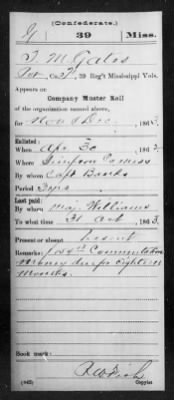 (Confederate.)
G 39 Miss.
T. M. Gates
Pvt, Co. 39 Reg't Mississippi Vols.
Appears on
Company Muster Roll
of the organization named above,
for Nov & Dec, 1863.
Enlisted:
When Apr 30, 186
Where Simpson Co Miss
By whom Capt Banks
Period 3 yrs
Last paid:
By whom Maj. Williams
To what time 31 Oct, 1863.
Present or absent Present
Remarks: Commutation
money due for eighteen
months.
Book mark:
(642) Copyist